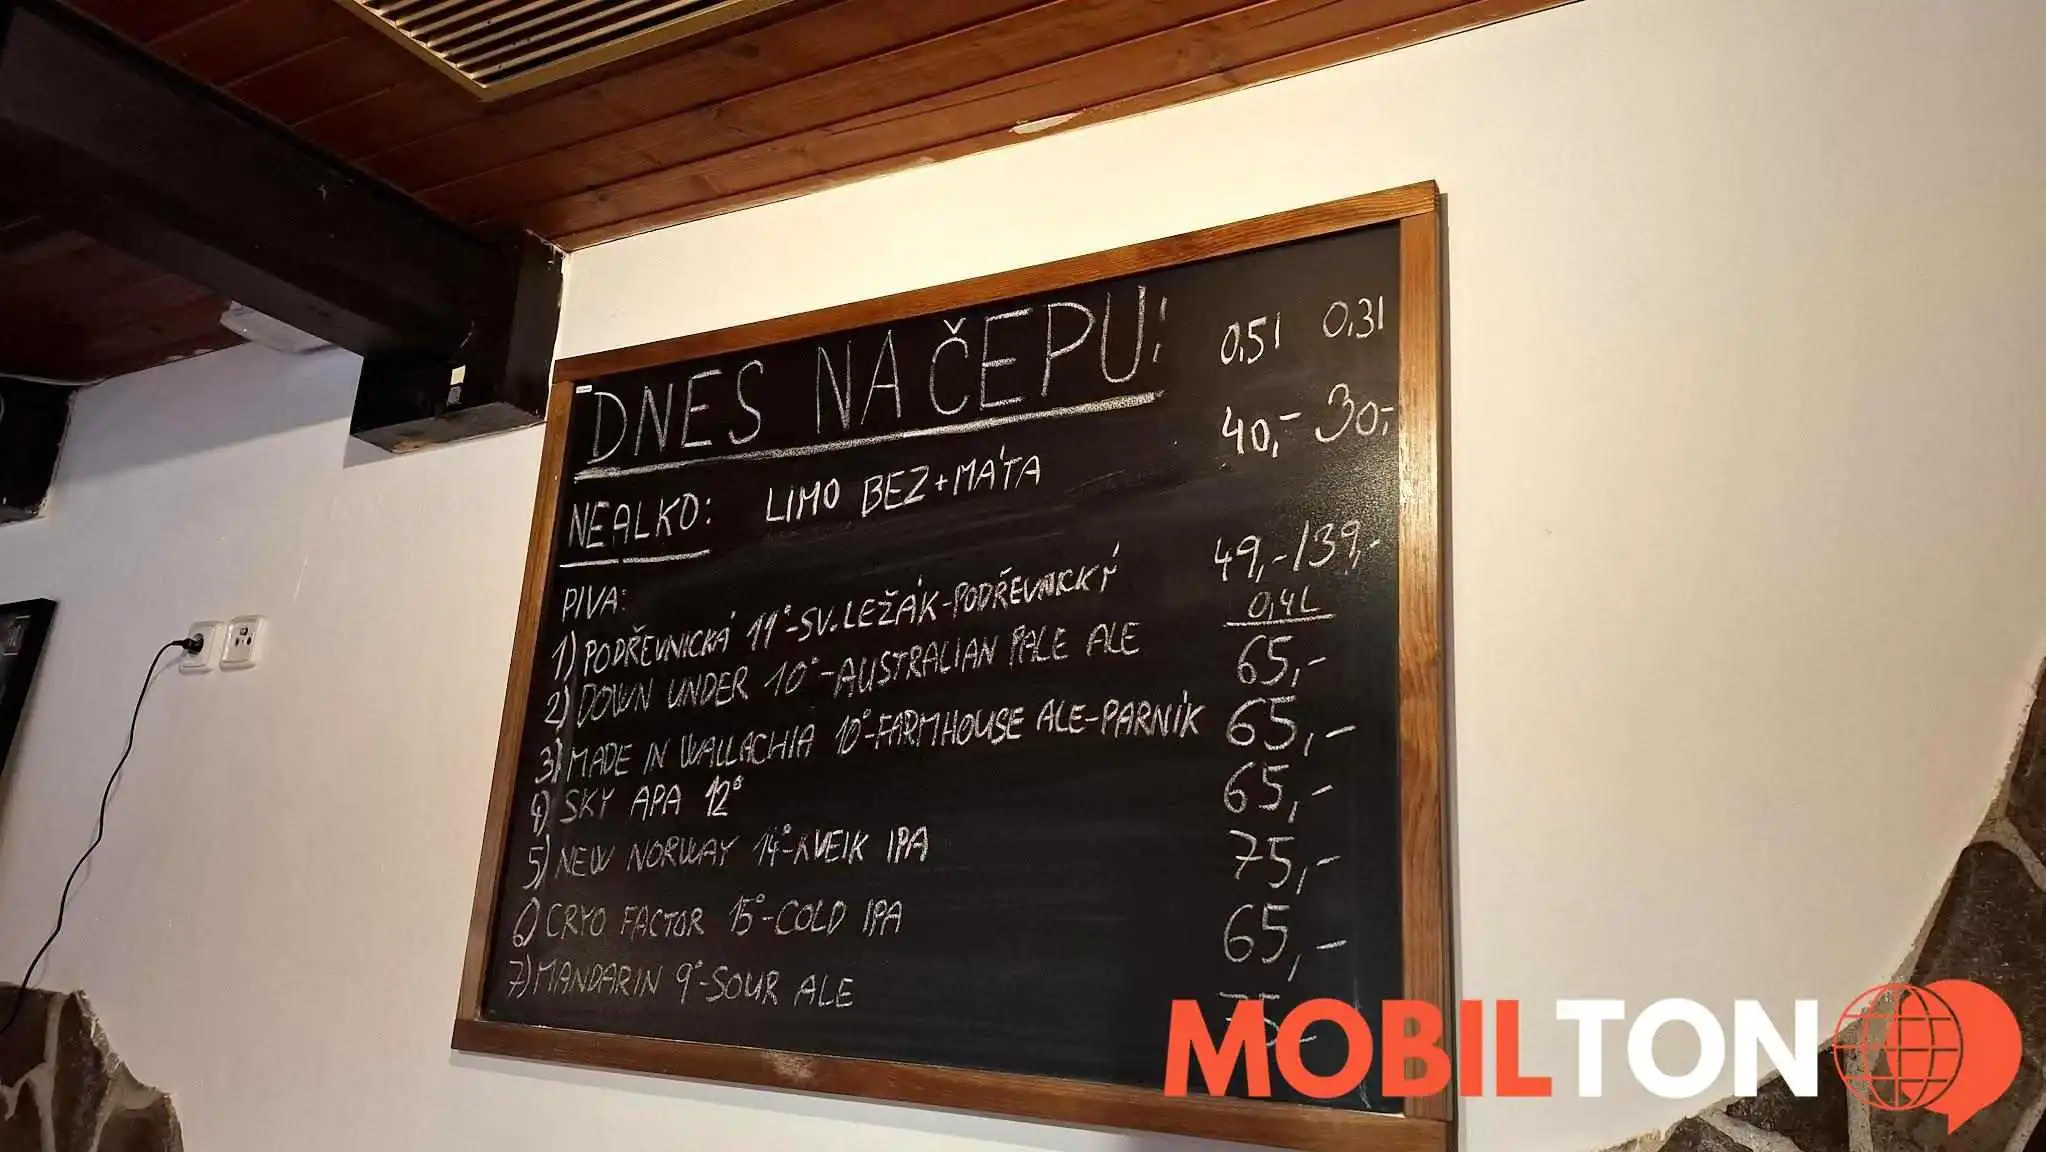 DNES NA ČEPU: 0,5l 0,3l
NEALKO: LIMO BEZ+MÁTA 40,- 30,-
PIVA:
1) PODŘEVNICKÁ 11°-SV.LEŽÁK-PODŘEVNICKÝ 49,-/39,-
0,4L
2) DOWN UNDER 10°-AUSTRALIAN PALE ALE 65,-
3) MADE IN WALLACHIA 10°-FARMHOUSE ALE-PARNÍK 65,-
4) SKY APA 12° 65,-
5) NEW NORWAY 14°-KVEIK IPA 75,-
6) CRYO FACTOR 15°-COLD IPA 65,-
7) MANDARIN 9°-SOUR ALE 75
MOBILTON